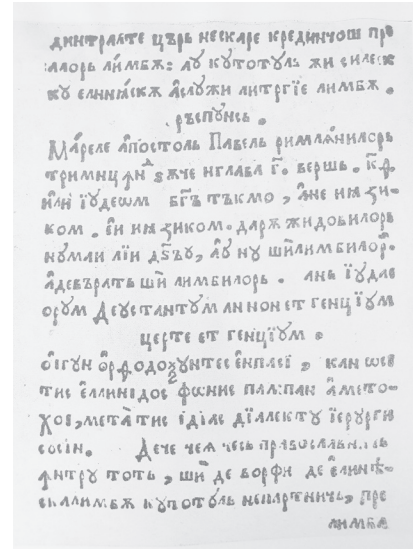 динтралте църь нескаре крединчош при
алорь лимбѫ: ау кутотуль жи силеск
ку елиниѧскѫ аслужи литргїе лимбѫ.
ръспунсь.
Мареле апостоль Павель римлѧнилорь
тримицѫнд ѕѫче нглава г҃. вершь. к҃ѳ.
или їудеѡм бг҃ъ тъкмо, ане ин ѕи-
ком. еи ин ѕиком. дарѫ жидовилорь
нумаи лїи дѕ҃ъу, ау ну ши лимбилорь.
адевърать ши лимбилорь. ань їудае
орум Деус тантум ан нон ет генцїум
церте ет генцїум.
ои гун орѳодоѯунтес енплеї, кан ѡсї
тис еллинидос фѡнис палпан амето-
хої, мета тис їдїас дїалекту їерурги
сосін. Дече чеѧ чесь православнїи
ꙟтру тоть, ши де ворфи де елинѣ-
ска лимбѫ кутотуль непартничь, пре
лимба